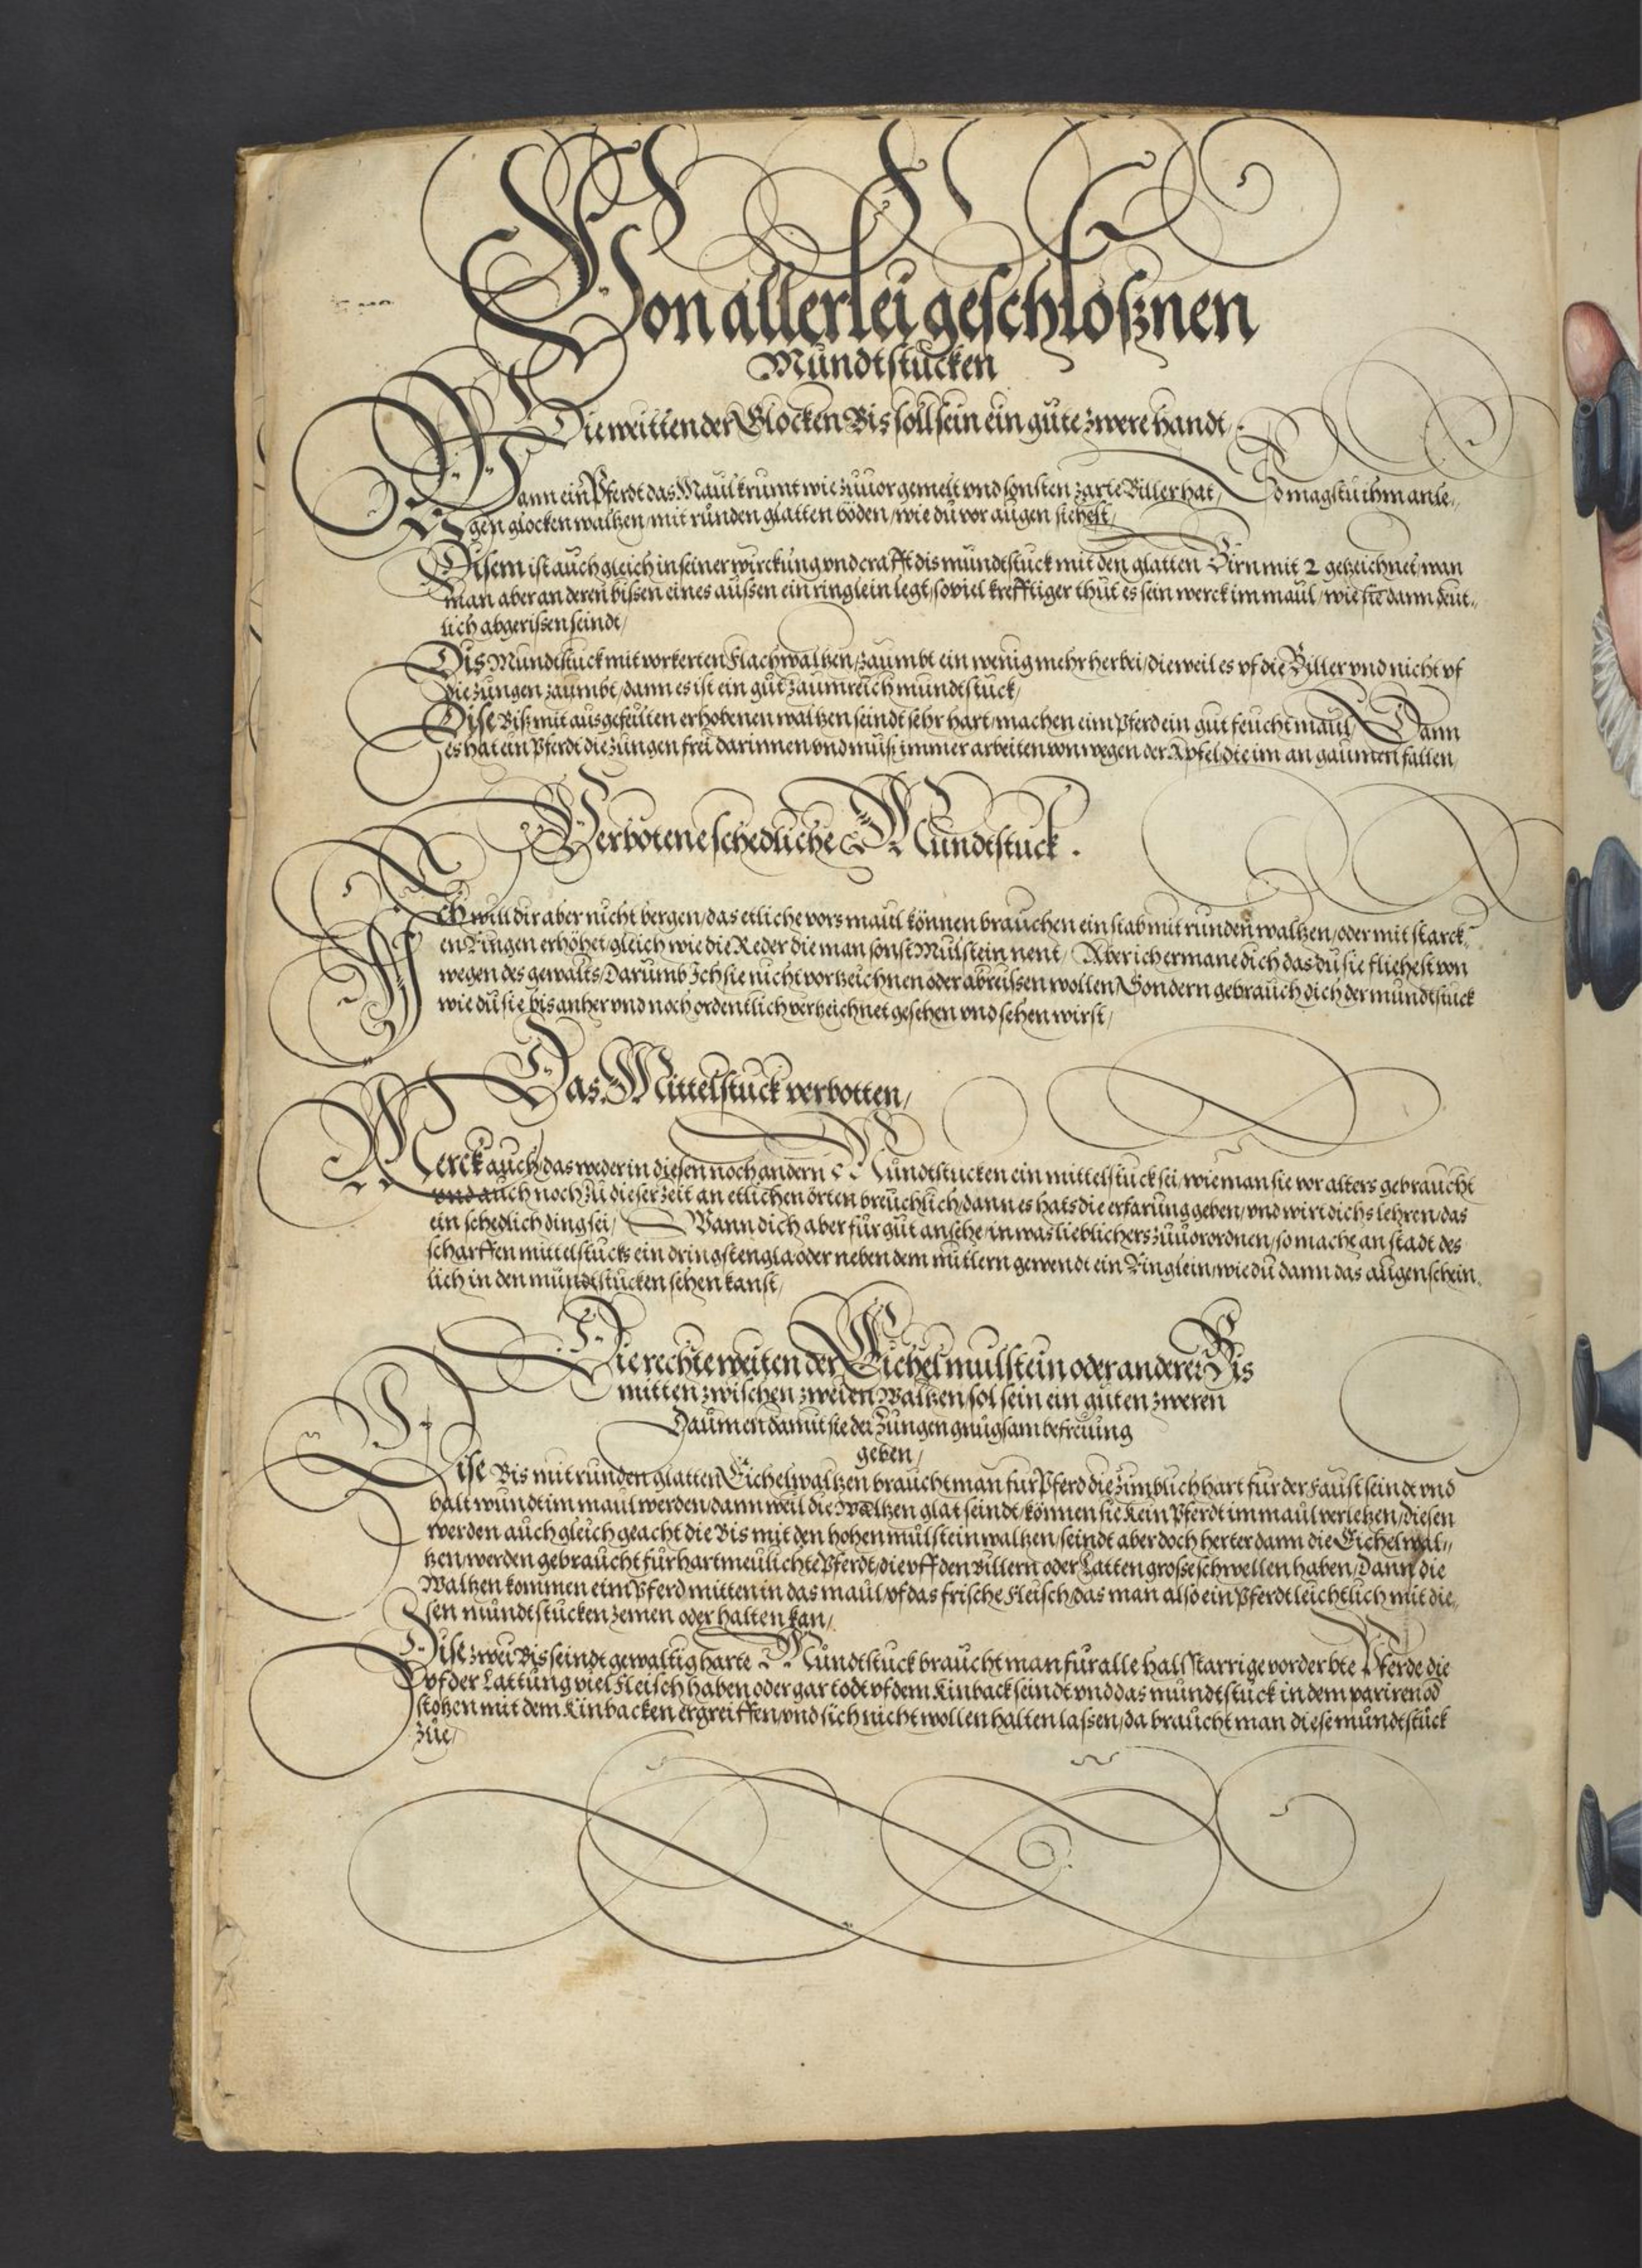 Von allerlei geschloßnen
Mundtstucken
Die weitten der Glocken Bis soll sein ein gute zwere handt,
Wann ein Pferdt das Maul krumt wie zuuor gemelt vnd sonsten zarte Biller hat, So magstu ihm anle,,
gen glocken waltzen, mit runden glatten böden, wie du vor augen siehest,
Disem ist auch gleich in seiner wirckung vnd crafft dis mundtstuck mit den glatten Birn mit 2 getzeichnet, wan
man aber an deren bissen eines aussen ein ringlein legt, soviel krefftiger thut es sein werck im maul, wie sie dann deut,,
lich abgerissen seindt,
Dis Mundtstuck mit vorkerten Flachwaltzen, zaumbt ein wenig mehr herbei, dieweil es vf die Biller vnd nicht vf
die zungen zaumbt, dann es ist ein gut zaumreich mundtstuck,
Dise Biß mit ausgefeulten erhobenen waltzen seindt sehr hart, machen eim Pferd ein gut feucht maul, Dann
es hat ein Pferdt die zungen frei darinnen vnd muß immer arbeiten von wegen der Apfel die im an gaumen fallen,
Verbotene schedliche Mundtstuck.
Ich will dir aber nicht bergen, das etliche vors maul können brauchen ein stab mit runden waltzen, oder mit starck,,
en Ringen erhöhet, gleich wie die Reder die man sonst Mulstein nent, Aber ich ermane dich das du sie fliehest von
wegen des gewalts, Darumb Ich sie nicht vortzeichnen oder abreissen wollen, Sondern gebrauch dich der mundtstuck
wie du sie bis anher vnd noch ordentlich vertzeichnet gesehen vnd sehen wirst,
Das Mittelstuck verbotten,
Merck auch, das weder in diesen noch andern Mundtstucken ein mittelstuck sei, wie man sie vor alters gebraucht
vnd auch noch zu dieser zeit an etlichen örten breuchlich, dann es hats die erfarung geben, vnd wirt dichs lehren, das
ein schedlich ding sei, Wann dich aber fur gut ansehe, in was lieblichers zuuorordnen, so mache an stadt des
scharffen mittelstucks ein dring stengla oder neben dem mitlern gewendt ein Ringlein, wie du dann das augenschein,,
lich in den mundtstucken sehen kanst,
Die rechte weiten der Eichel mulstein oder anderer Bis
mitten zwischen zweien Waltzen, sol sein ein guten zweren
Daumen damit sie der Zungen gnugsam befreiung
geben,
Dise Bis mit runden glatten Eichelwaltzen braucht man fur Pferd die zimblich hart fur der Faust seindt vnd
balt wundt im maul werden, dann weil die Waltzen glat seindt, können sie kein Pferdt im maul verletzen, diesen
werden auch gleich geacht die Bis mit den hohen mulstein waltzen, seindt aber doch herter dann die Eichelwal,,
tzen, werden gebraucht fur hartmeulichte Pferdt, die vff den Billern oder Latten grosse schwellen haben, Dann die
Waltzen kommen eim Pferd mitten in das maul, vf das frische Fleisch, das man also ein Pferdt leichtlich mit die,,
sen mundtstucken zemen oder halten kan,
Dise zwei Bis seindt gewaltig harte Mundtstuck braucht man fur alle hallsstarrige vorderbte Pferde die
vf der Lattung viel Fleisch haben oder gar todt vf dem Kinback seindt vnd das mundtstuck in dem pariren od
stotzen mit dem Kinbacken ergreiffen, vnd sich nicht wollen halten lassen, da braucht man diese mundtstuck
zue,